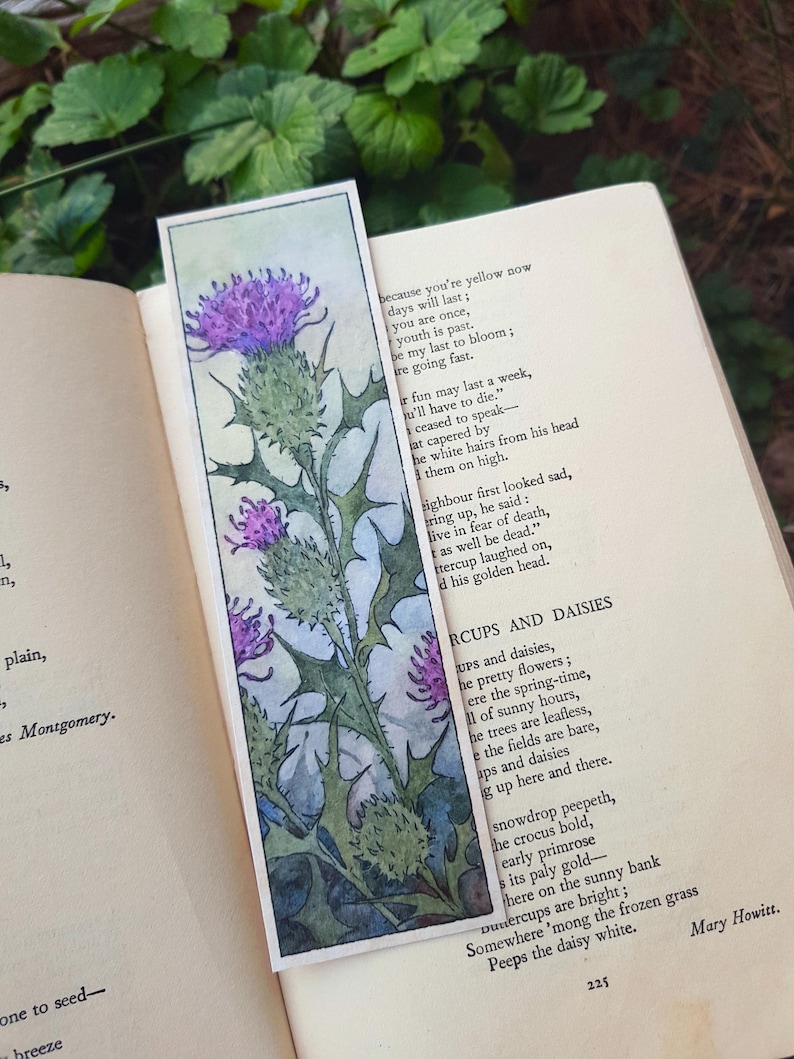 plain,
es Montgomery.
one to seed—
breeze
because you're yellow now
days will last;
you are once,
youth is past.
be my last to bloom;
are going fast.
fun may last a week,
you'll have to die."
ceased to speak—
at capered by
he white hairs from his head
them on high.
neighbour first looked sad,
ering up, he said:
live in fear of death,
as well be dead."
ttercup laughed on,
d his golden head.
RCUPS AND DAISIES
cups and daisies,
he pretty flowers;
ere the spring-time,
ll of sunny hours,
he trees are leafless,
e the fields are bare,
ups and daisies
g up here and there.
snowdrop peepeth,
the crocus bold,
early primrose
s its paly gold—
here on the sunny bank
Buttercups are bright;
Somewhere 'mong the frozen grass
Peeps the daisy white.
Mary Howitt.
225